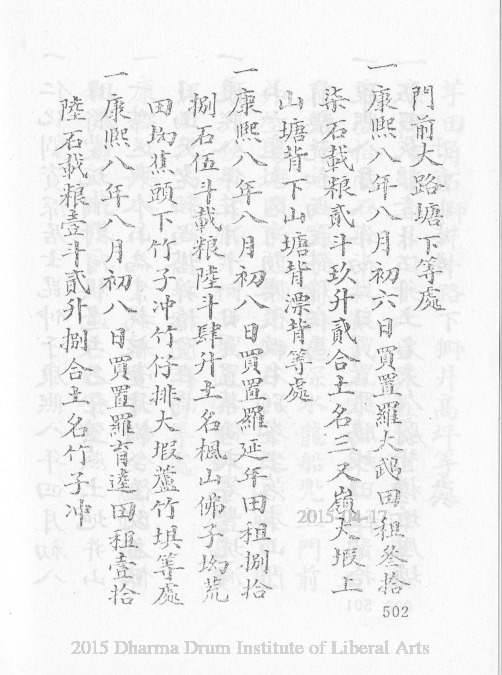 門前大路塘下等處
一康熙八年八月初六日買置羅大鵡田租叁拾
柒石載粮貳斗玖升貳合土名三叉嶺大塅上
山塘背下山塘背漂背等處
一康熙八年八月初八日買置羅延年田租捌拾
捌石伍斗載粮陸斗肆升土名楓山佛子坳荒
田坳蕉頭下竹子冲竹仔排大塅蘆竹垻等處
一康熙八年八月初八日買置羅育逵田租壹拾
陸石載粮壹斗貳升捌合土名竹子冲
2015-04-17
502
2015 Dharma Drum Institute of Liberal Arts